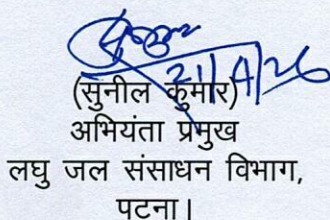 21/4/26
(सुनील कुमार)
अभियंता प्रमुख
लघु जल संसाधन विभाग,
पटना।